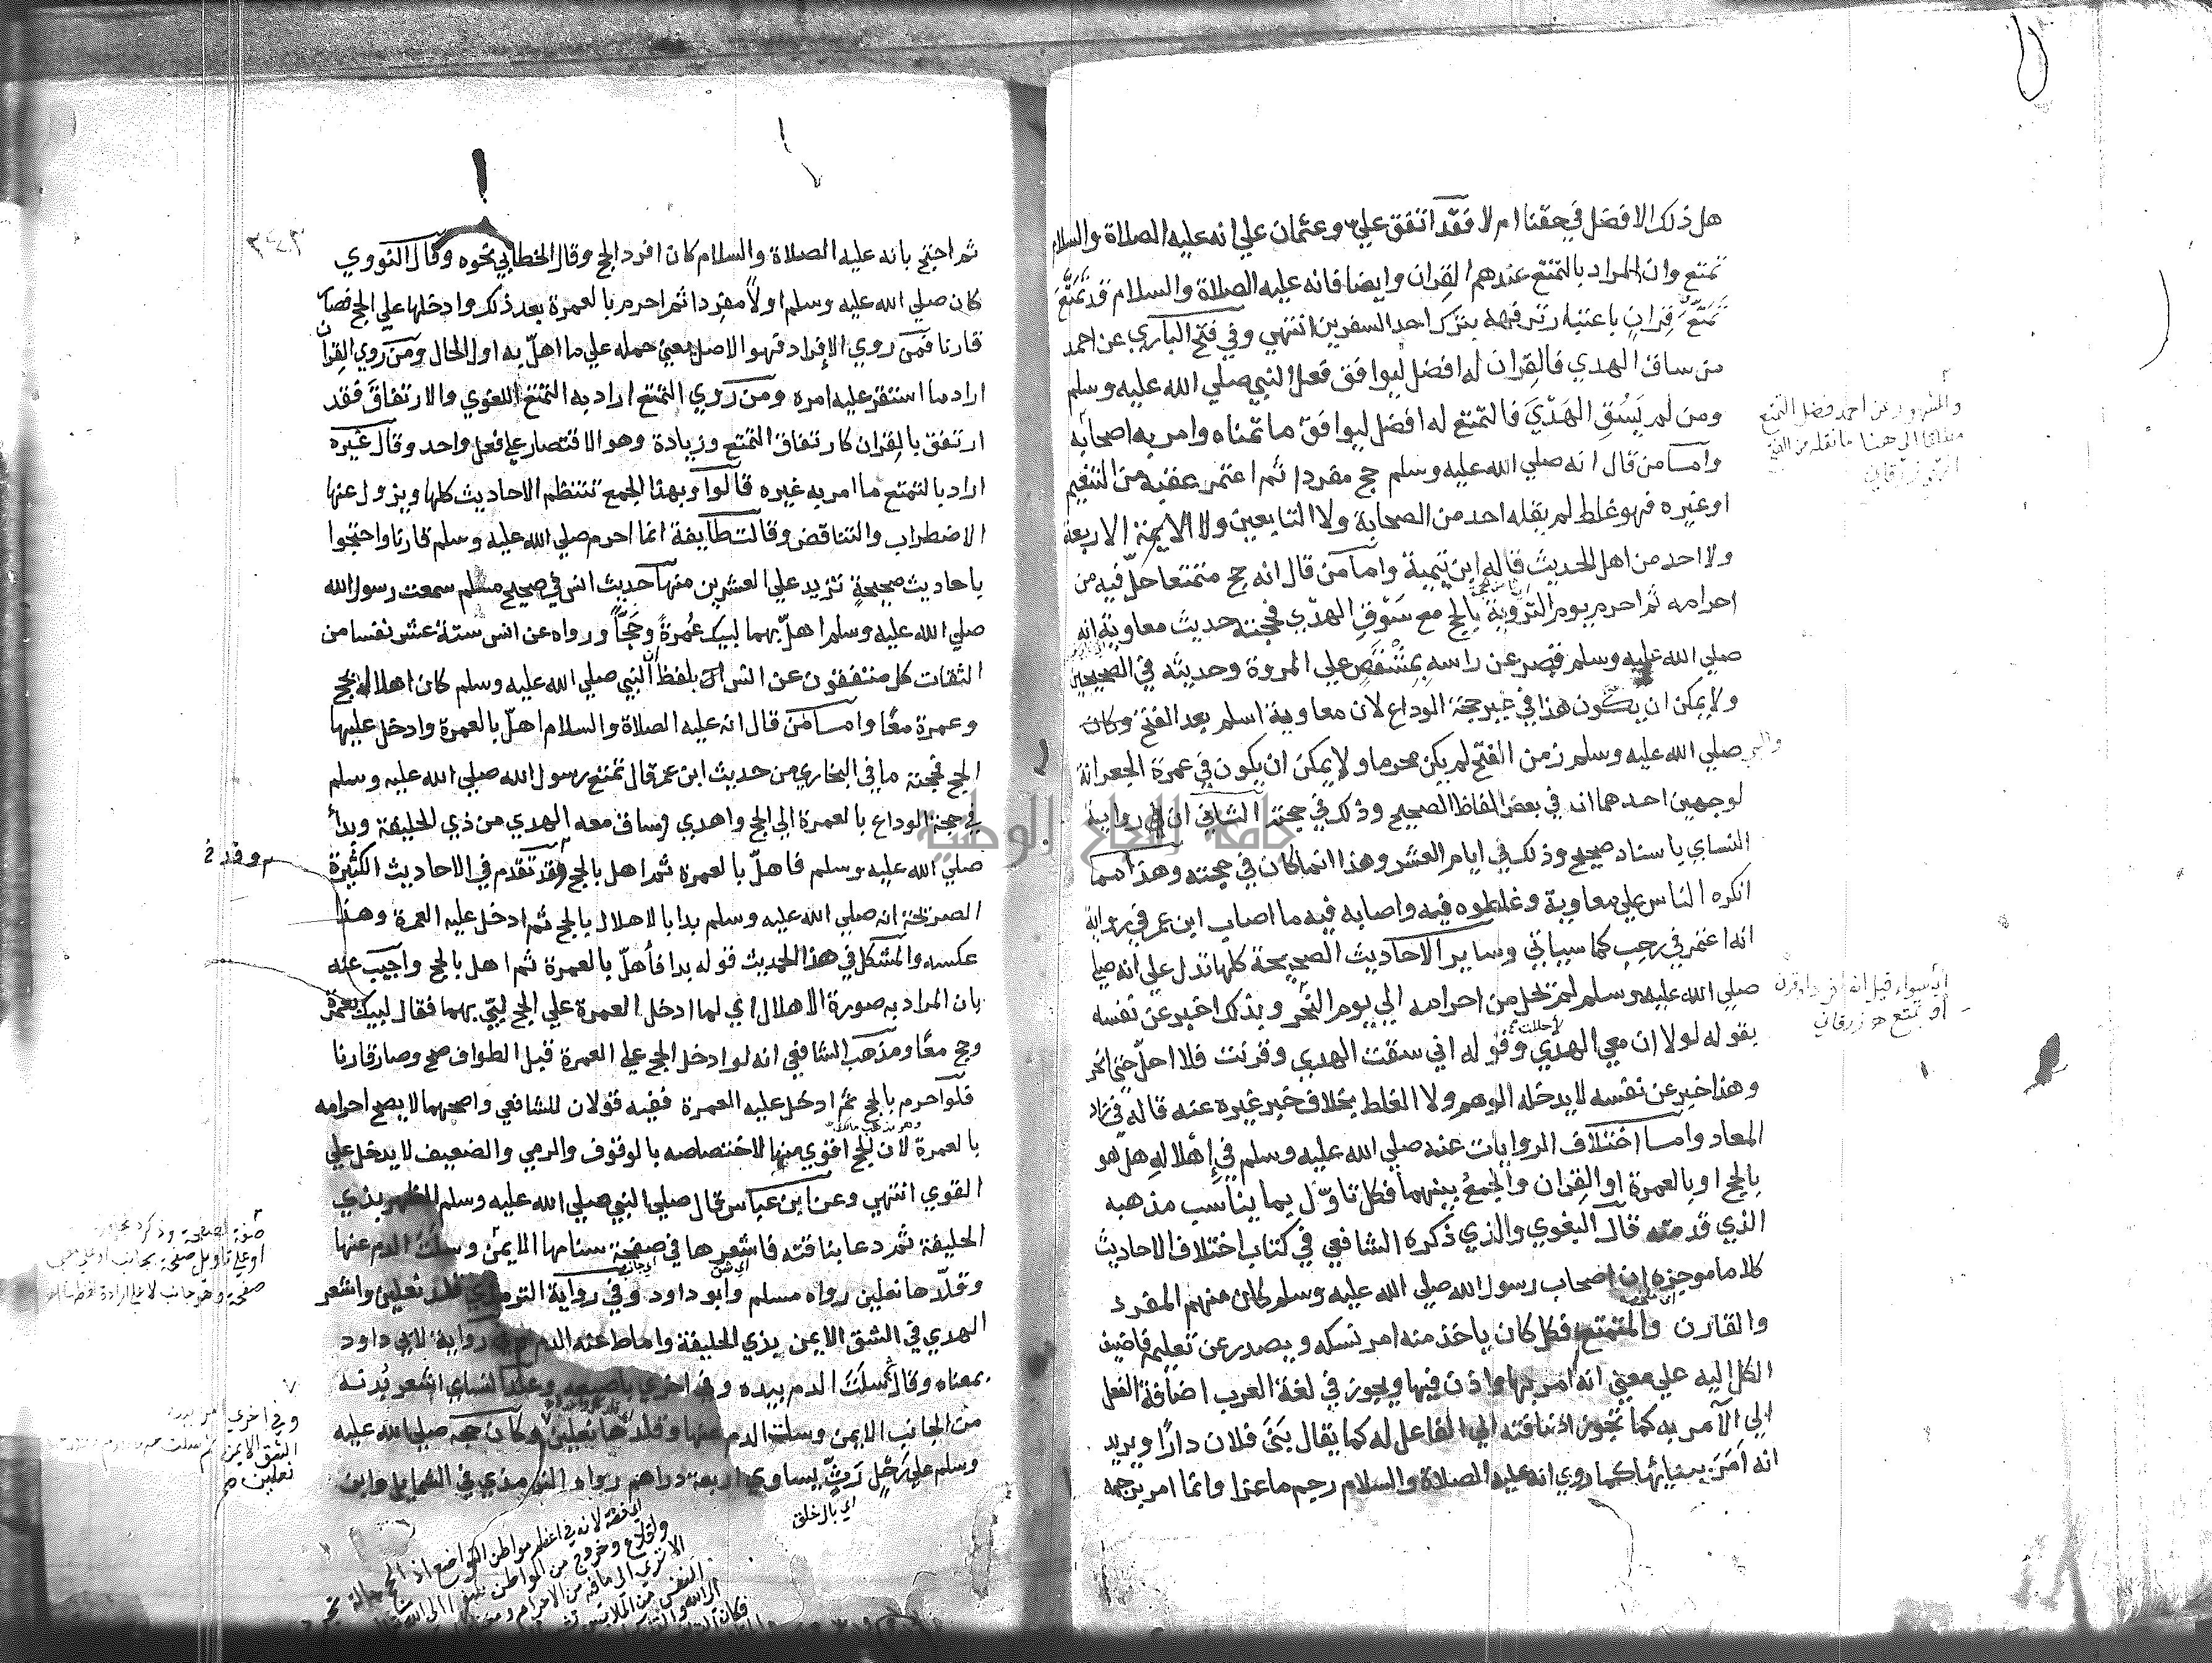 هل ذلك الافضل في حقنا ام لا فقد اتفق علي وعثمان علي انه عليه الصلاة والسلام
تمتع وان المراد بالتمتع عندهم القران وايضا فانه عليه الصلاة والسلام قد تمتع
تمتع قران باعتبار ترفهه بترك احد السفرين انتهي وفي فتح الباري عن احمد
من ساق الهدي فالقران له افضل ليوافق فعل النبي صلي الله عليه وسلم
ومن لم يسق الهدي فالتمتع له افضل ليوافق ما تمناه وامر به اصحابه
واما من قال انه صلي الله عليه وسلم حج مفردا ثم اعتمر عقبه من التنعيم
او غيره فهو غلط لم يقله احد من الصحابة ولا التابعين ولا الايمة الاربعة
ولا احد من اهل الحديث قاله ابن تيمية واما من قال انه حج متمتعا حل فيه من
احرامه ثم احرم يوم التروية بالحج مع سوق الهدي فحجته حديث معاوية انه
صلي الله عليه وسلم قصر عن راسه بمشقص علي المروة وحديثه في الصحيحين
ولا يمكن ان يكون هذا في غير حجة الوداع لان معاوية اسلم بعد الفتح وكان
والنبي صلي الله عليه وسلم زمن الفتح لم يكن محرما ولا يمكن ان يكون في عمرة الجعرانة
لوجهين احدهما انه في بعض الفاظ الصحيح وذلك في حجته الثاني ان في رواية
النساي باسناد صحيح وذلك في ايام العشر وهذا انما كان في حجته وهذا مما
انكره الناس علي معاوية وغلطوه فيه واصابه فيه ما اصاب ابن عمر في روايته
انه اعتمر في رجب كما سياتي وساير الاحاديث الصحيحة كلها تدل علي انه صلي
صلي الله عليه وسلم لم يحل من احرامه الي يوم النحر وبذلك اخبر عن نفسه
بقوله لولا ان معي الهدي لاحللت وقوله اني سقت الهدي وقرنت فلا احل حتي انحر
وهذا خبر عن نفسه لا يدخله الوهم ولا الغلط بخلاف خبر غيره عنه قاله في زاد
المعاد واما اختلاف الروايات عنه صلي الله عليه وسلم في إهلاله هل هو
بالحج او بالعمرة او القران والجمع بينهما فكل تاول بما يناسب مذهبه
الذي قدمته قال البغوي والذي ذكره الشافعي في كتاب اختلاف الاحاديث
كلاما موجزه ان اصحاب رسول الله صلي الله عليه وسلم كان منهم المفرد
والقارن والمتمتع فكل كان ياخذ منه امر نسكه ويصدر عن تعليمه فاضيف
الكل اليه علي معني انه امر بها واذن فيها ويجوز في لغة العرب اضافة الفعل
الي الآمر به كما تجوز اضافته الي الفاعل له كما يقال بنى فلان دارا ويريد
انه امر ببنائها كما روي انه عليه الصلاة والسلام رجم ماعزا وانما امر برجمه
ثم احتج بانه عليه الصلاة والسلام كان افرد الحج وقال الخطابي نحوه وقال النووي
كان صلي الله عليه وسلم اولا مفردا ثم احرم بالعمرة بعد ذلك وادخلها علي الحج فصار
قارنا فمن روي الإفراد فهو الاصل يعني حمله علي ما اهل به اول الحال ومن روي القران
اراد ما استقر عليه امره ومن روي التمتع اراد به التمتع اللغوي والارتفاق فقد
ارتفق بالقران كارتفاق التمتع وزيادة وهو الاقتصار علي فعل واحد وقال غيره
اراد بالتمتع ما امر به غيره قالوا وبهذا الجمع تنتظم الاحاديث كلها ويزول عنها
الاضطراب والتناقض وقالت طايفة انما احرم صلي الله عليه وسلم قارنا واحتجوا
باحاديث صحيحة تزيد علي العشرين منها حديث انس في صحيح مسلم سمعت رسول الله
صلي الله عليه وسلم اهل بهما لبيك عمرة وحجا ورواه عن انس ستة عشر نفسا من
الثقات كل متفقون عن انس بلفظ ان النبي صلي الله عليه وسلم كان اهلاله بحج
وعمرة معا واما من قال انه عليه الصلاة والسلام اهل بالعمرة وادخل عليها
الحج فحجته ما في البخاري من حديث ابن عمر قال تمتع رسول الله صلي الله عليه وسلم
في حجة الوداع بالعمرة الي الحج واهدي وساق معه الهدي من ذي الحليفة وبدأ
صلي الله عليه وسلم فاهل بالعمرة ثم اهل بالحج وقد تقدم في الاحاديث الكثيرة
الصريحة انه صلي الله عليه وسلم بدا بالاهلال بالحج ثم ادخل عليه العمرة وهذا
عكسه والمشكل في هذا الحديث قوله بدا فأهل بالعمرة ثم اهل بالحج واجيب عنه
بان المراد به صورة الاهلال اي لما ادخل العمرة علي الحج لبي بهما فقال لبيك بعمرة
وحج معا ومذهب الشافعي انه لو ادخل الحج علي العمرة قبل الطواف صح وصار قارنا
فلو احرم بالحج ثم ادخل عليه العمرة ففيه قولان للشافعي واصحهما لا يصح احرامه
وهو مذهب مالك
بالعمرة لان الحج اقوي منها لاختصاصه بالوقوف والرمي والضعيف لا يدخل علي
القوي انتهي وعن ابن عباس قال صلي النبي صلي الله عليه وسلم الظهر بذي
الحليفة ثم دعا بناقته فاشعرها في صفحة سنامها الايمن وسلت الدم عنها
وقلدها نعلين رواه مسلم وابو داود وفي رواية الترمذي قلد نعلين واشعر
الهدي في الشق الايمن بذي الحليفة واماط عنه الدم وفي رواية لابي داود
بمعناه وقال ثم سلت الدم بيده وفي اخري باصبعه وعند النساي اشعر بدنه
من الجانب الايمن وسلت الدم عنها وقلدها نعلين وكان حجه صلي الله عليه
وسلم علي رحل رث يساوي اربعة دراهم رواه الترمذي في الشمايل وابن
اي بال خلق